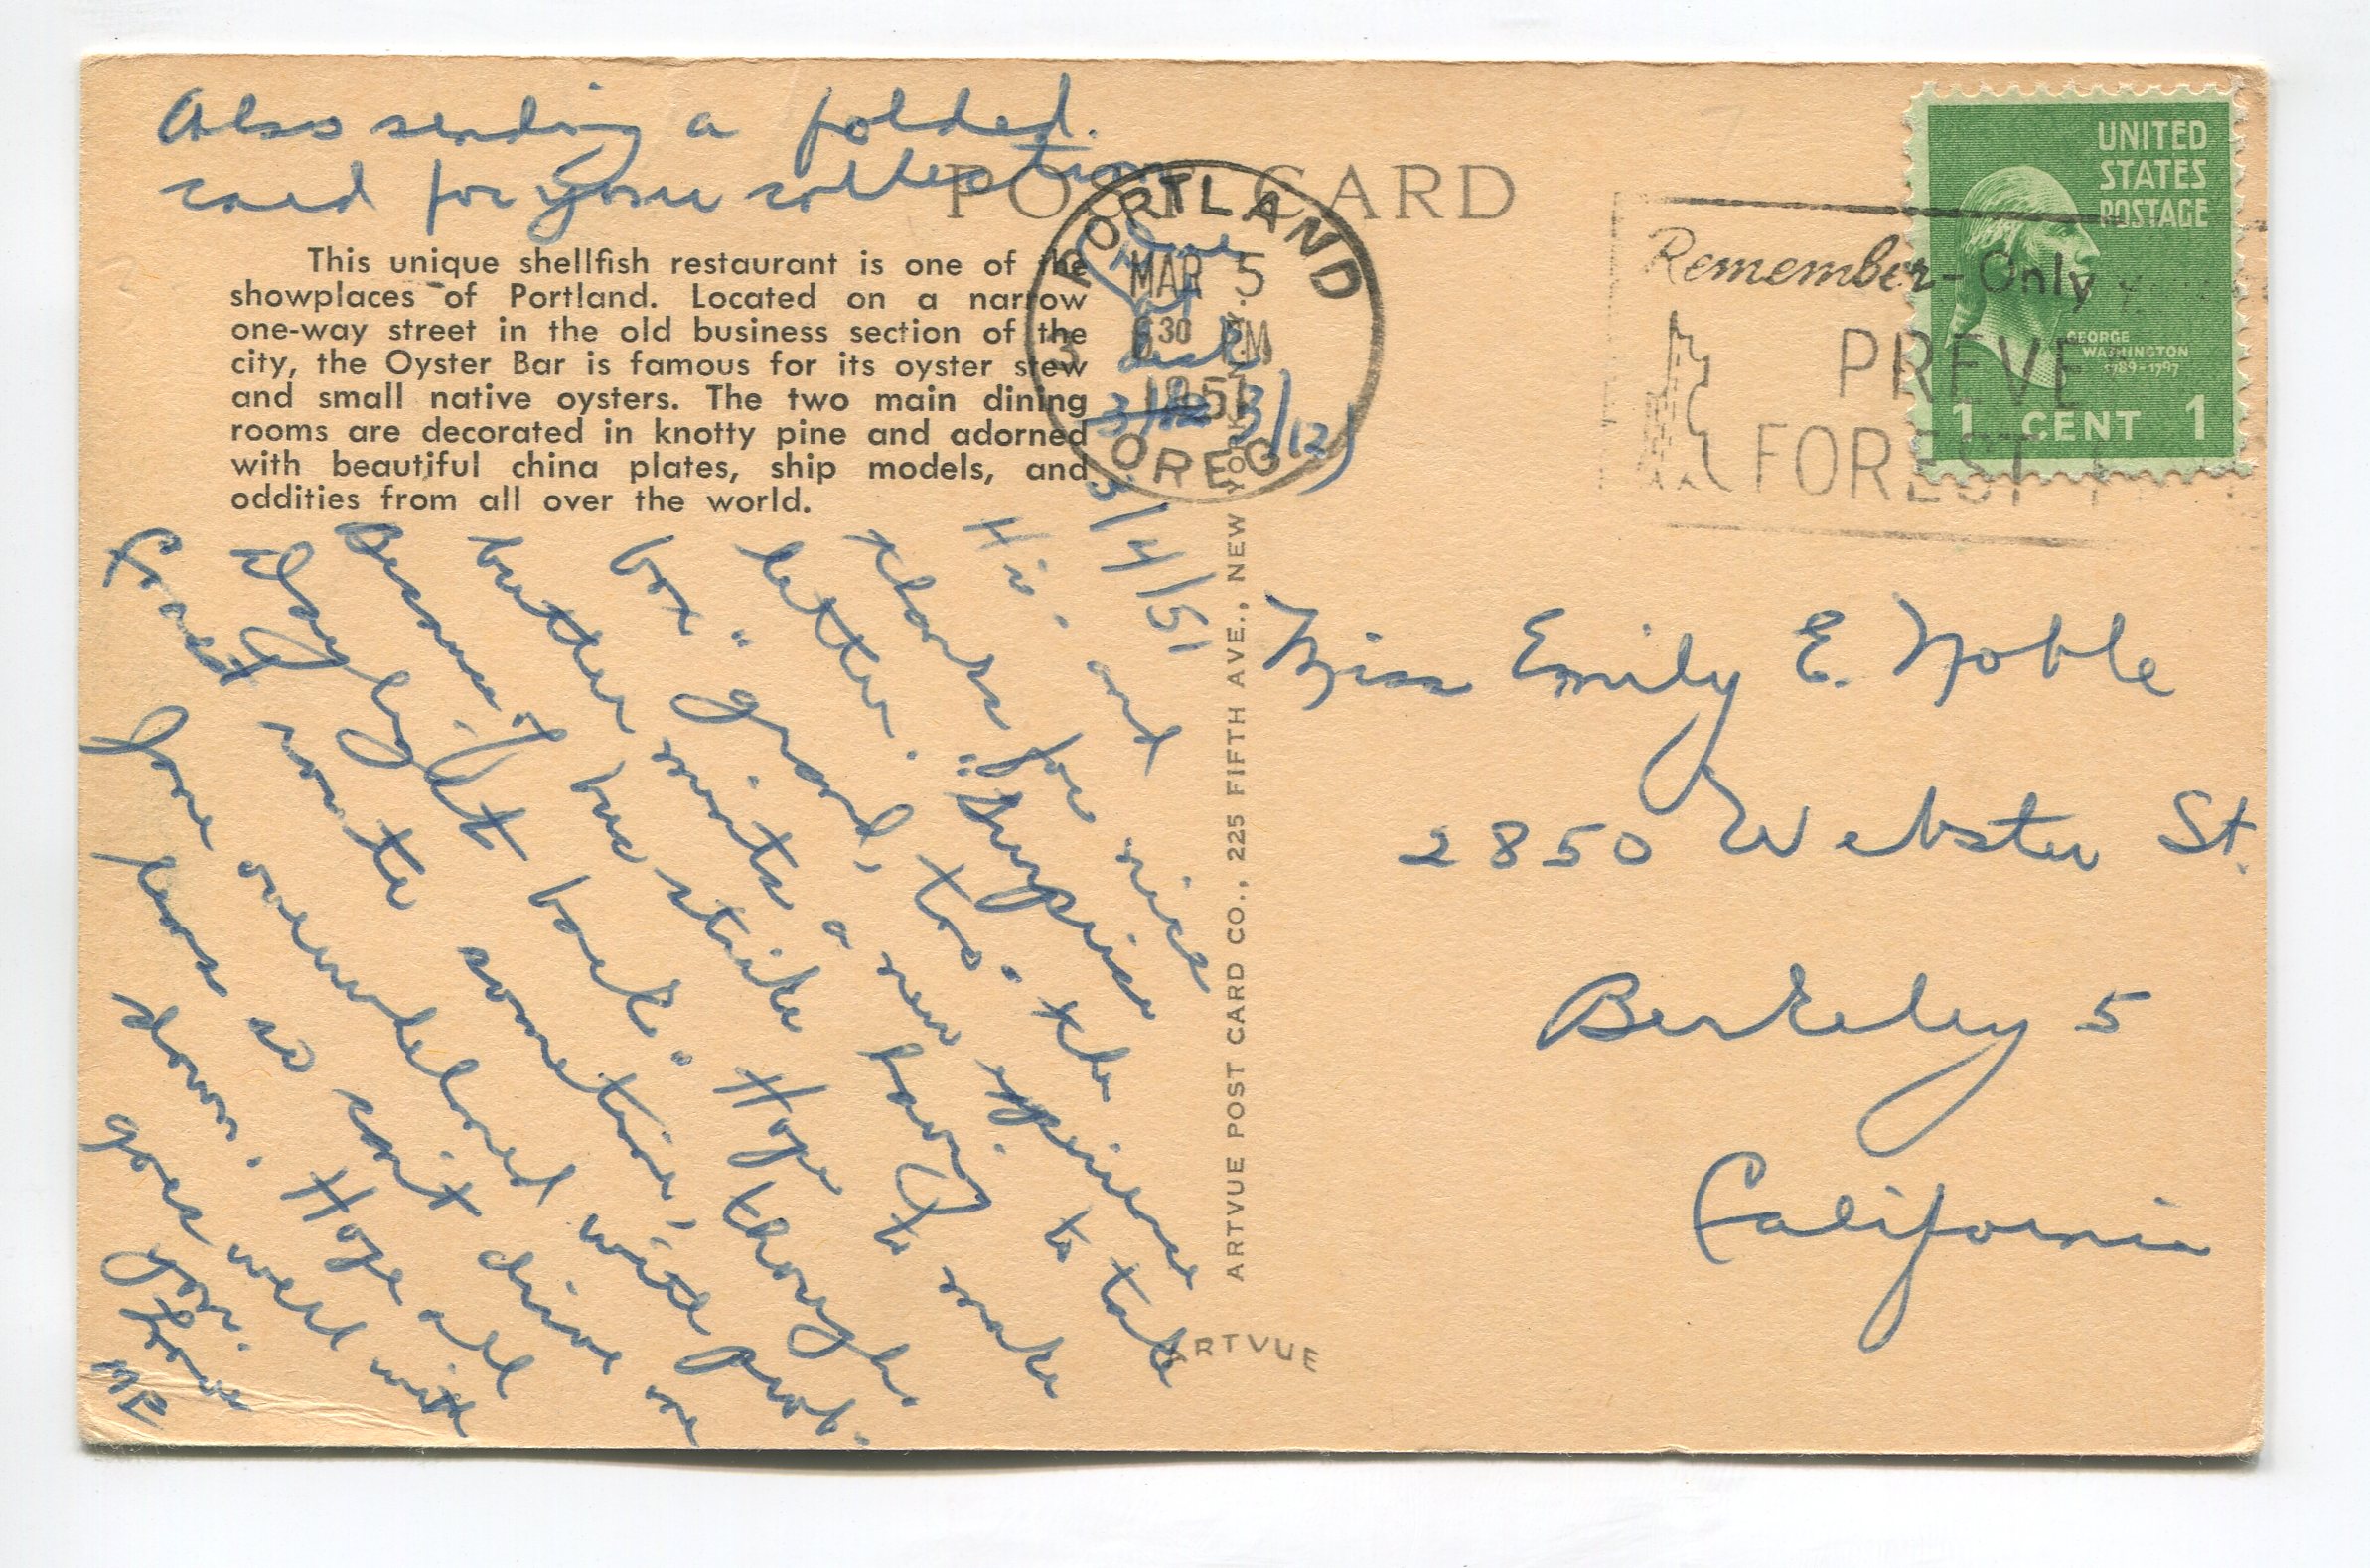 Also sending a folded
card for your collection
POST CARD
PORTLAND
MAR 5
6 30 PM
1951
OREG
3
3/12 3/12)
Remember - Only
PREVE
FOREST
UNITED
STATES
POSTAGE
GEORGE
WASHINGTON
1789-1797
1 CENT 1
This unique shellfish restaurant is one of the
showplaces of Portland. Located on a narrow
one-way street in the old business section of the
city, the Oyster Bar is famous for its oyster stew
and small native oysters. The two main dining
rooms are decorated in knotty pine and adorned
with beautiful china plates, ship models, and
oddities from all over the world.
3/4/51
Hi - and
thanks for nice
letter. "Surprise
box" grand, too. The
butter mints a new experience
Because of bus strike having to take
Daylight back. Hope to make
Coast route sometime, though.
Jane overwhelmed with prob-
lems so can't drive me
down. Hope all
goes well with
you.
Love
MR
Miss Emily E. Noble
2850 Webster St.
Berkeley 5
California
ARTVUE POST CARD CO., 225 FIFTH AVE., NEW YORK, N.Y.
ARTVUE